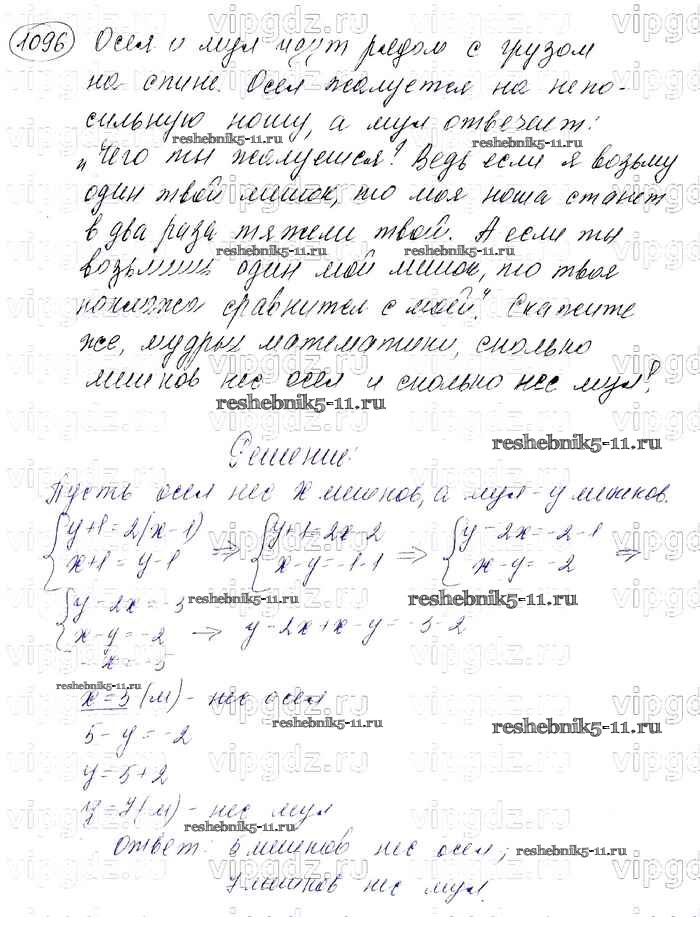 1096 Осел и мул идут рядом с грузом
на спине. Осел жалуется на непо-
сильную ношу, а мул отвечает:
„Чего ты жалуешся? Ведь если я возьму
один твой мешок, то моя ноша станет
в два раза тяжели твой. А если ты
возьмешь один мой мешок, то твоя
поклажа сравнится с моей". Скажите
же, мудрый математики, сколько
мешков нес осел и сколько нес мул?
Решение:
Пусть осел нес x мешков, а мул – y мешков.
{y+1=2(x-1) ⇒ {y+1=2x-2 ⇒ {y-2x=-2-1 ⇒
{x+1=y-1 {x-y=-1-1 {x-y=-2
{y-2x=-3
{x-y=-2 → y-2x+x-y=-3-2
-x=-5
x=5 (м) - нес осел
5-y=-2
y=5+2
y=7(м) - нес мул
Ответ: 5 мешков нес осел;
7 мешков нес мул.
vipgdz.ru
reshebnik5-11.ru